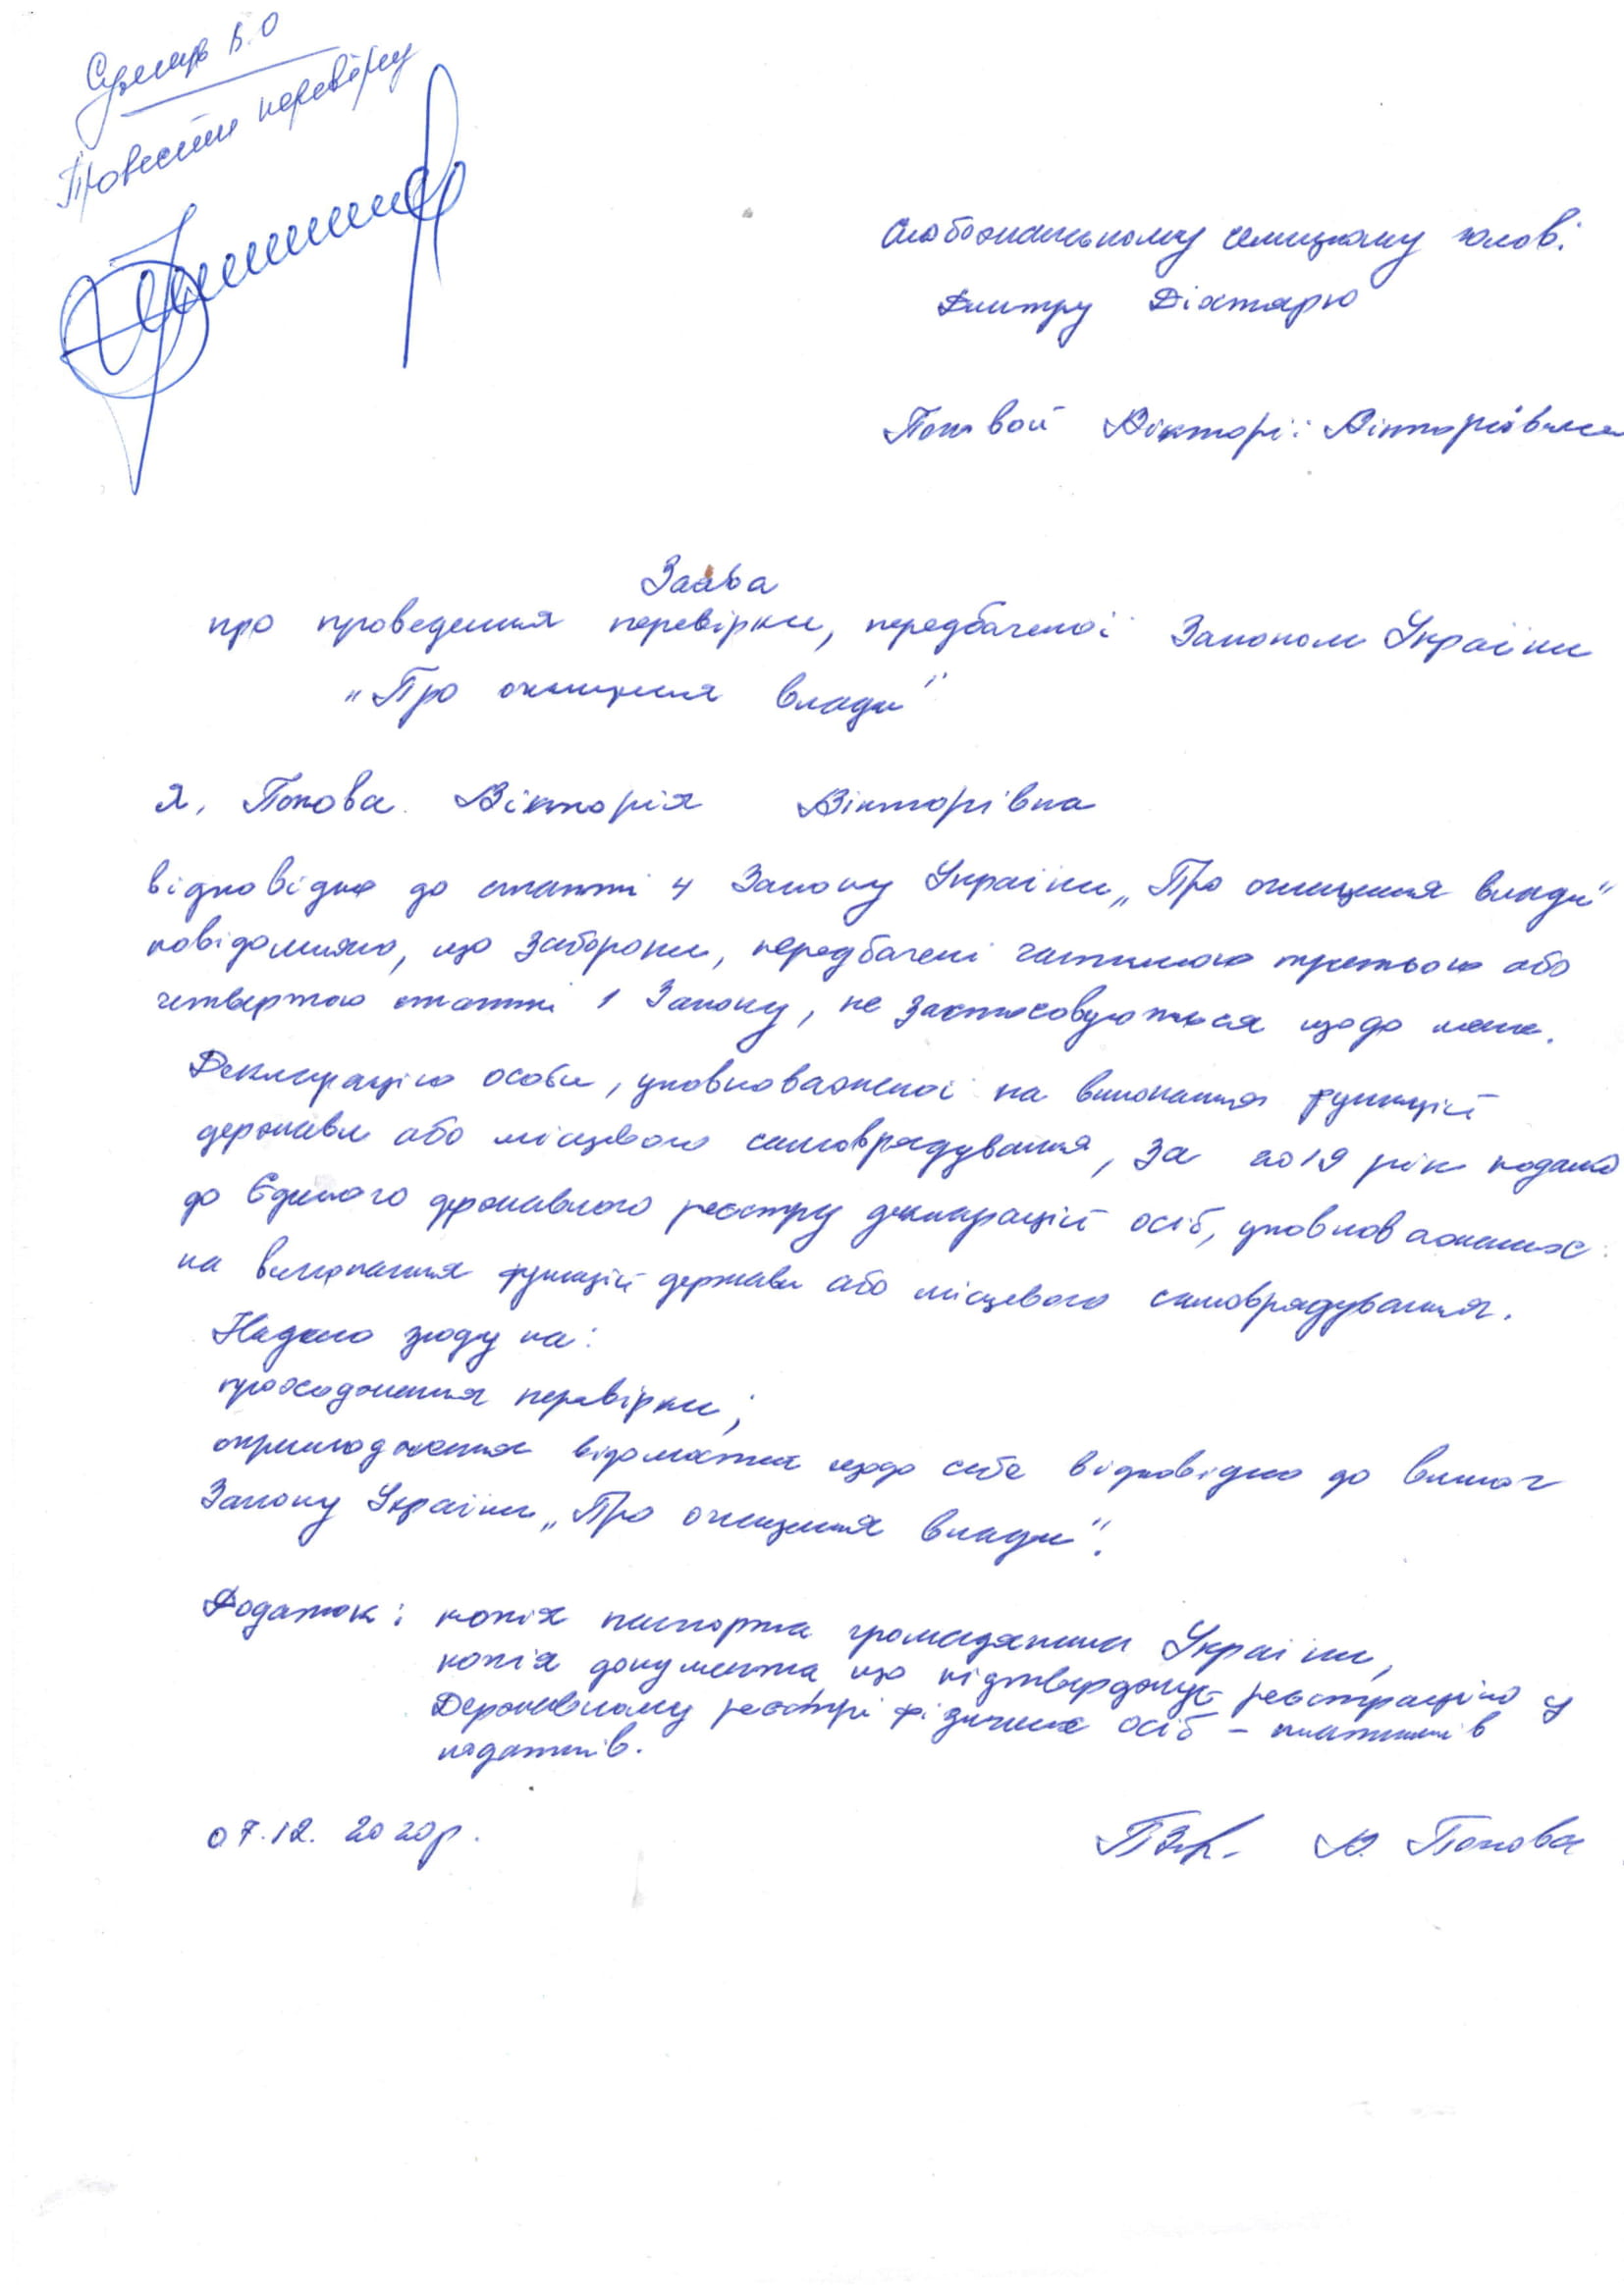 В.О
Провести перевірку
Слобожанському селищному голові
Дмитру Діхтярю
Поповой Вікторії Вікторівни
Заява
про проведення перевірки, передбаченої Законом України
"Про очищення влади"
Я, Попова Вікторія Вікторівна
відповідно до статті 4 Закону України „Про очищення влади"
повідомляю, що заборони, передбачені частиною третьою або
четвертою статті 1 Закону, не застосовуються щодо мене.
Декларацію особи, уповноваженої на виконання функцій
держави або місцевого самоврядування, за 2019 рік подано
до Єдиного державного реєстру декларацій осіб, уповноважених
на виконання функцій держави або місцевого самоврядування.
Надаю згоду на:
проходження перевірки;
оприлюднення відомостей щодо себе відповідно до вимог
Закону України „Про очищення влади".
Додаток: копія паспорта громадянина України,
копія документа, що підтверджує реєстрацію у
Державному реєстрі фізичних осіб - платників
податків.
07.12.2020р. В. Попова